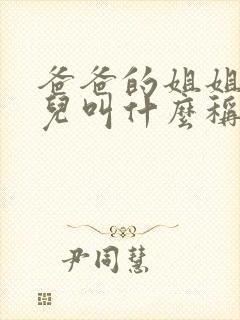 爸爸的姐姐
兒叫什麼稱
尹同慧